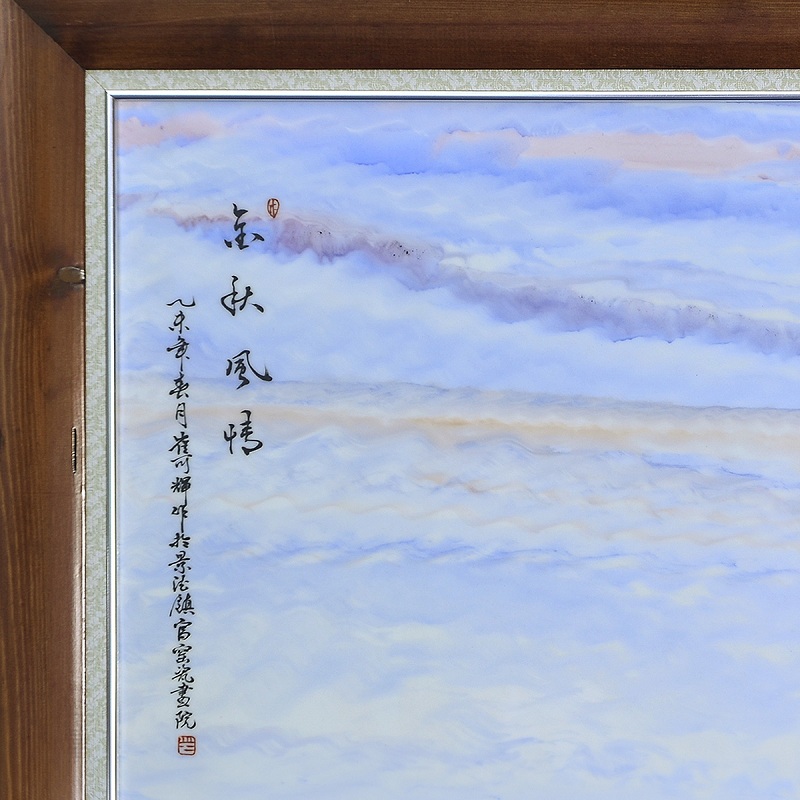 金秋風情
乙未年春月崔可輝作於景德鎮官窯瓷畫院